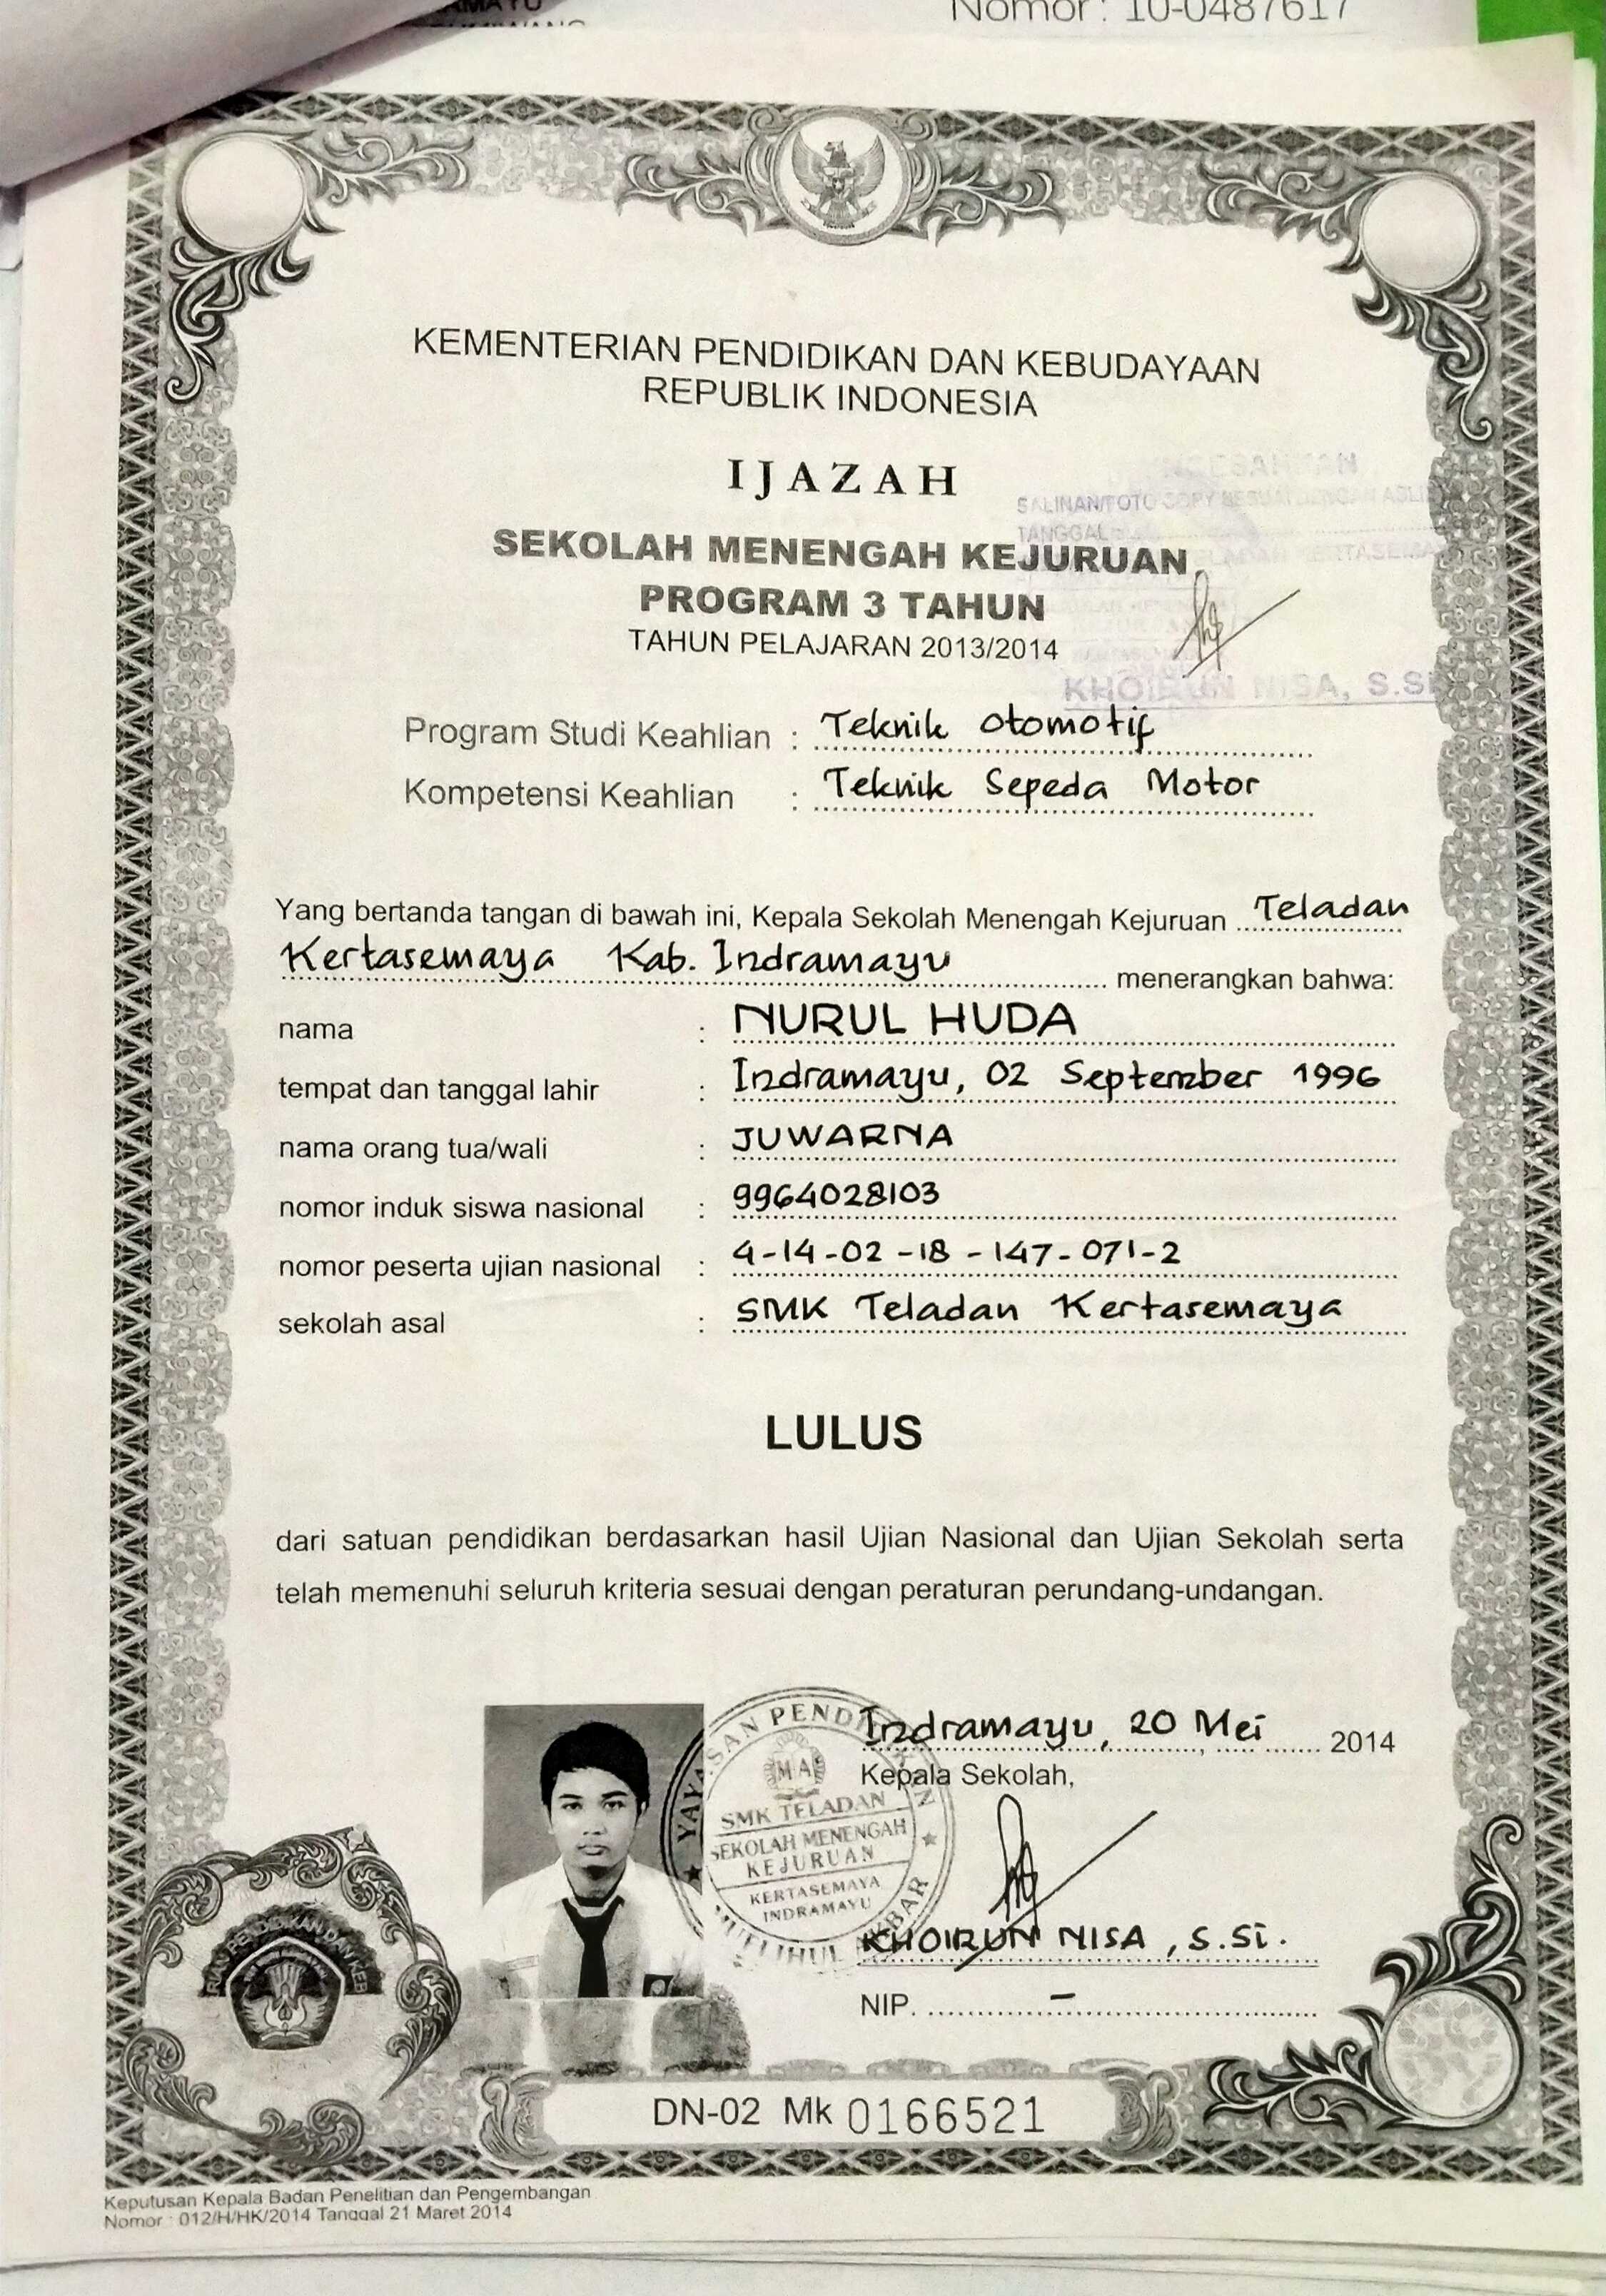 Nomor : 10-0487617
KEMENTERIAN PENDIDIKAN DAN KEBUDAYAAN
REPUBLIK INDONESIA
IJAZAH
SALINAN/FOTO COPY SESUAI DENGAN ASLI
TANGGAL
SEKOLAH MENENGAH KEJURUAN
PROGRAM 3 TAHUN
TAHUN PELAJARAN 2013/2014
KHOIRUN NISA, S.Si
Program Studi Keahlian : Teknik Otomotif
Kompetensi Keahlian : Teknik Sepeda Motor
Yang bertanda tangan di bawah ini, Kepala Sekolah Menengah Kejuruan Teladan
Kertasemaya Kab. Indramayu menerangkan bahwa:
nama : NURUL HUDA
tempat dan tanggal lahir : Indramayu, 02 September 1996
nama orang tua/wali : JUWARNA
nomor induk siswa nasional : 9964028103
nomor peserta ujian nasional : 4-14-02-18-147-071-2
sekolah asal : SMK Teladan Kertasemaya
LULUS
dari satuan pendidikan berdasarkan hasil Ujian Nasional dan Ujian Sekolah serta
telah memenuhi seluruh kriteria sesuai dengan peraturan perundang-undangan.
Indramayu, 20 Mei 2014
Kepala Sekolah,
SMK TELADAN
SEKOLAH MENENGAH
KEJURUAN
KERTASEMAYA
INDRAMAYU
KHOIRUN NISA, S.Si.
NIP. -
DN-02 Mk 0166521
Keputusan Kepala Badan Penelitian dan Pengembangan
Nomor : 012/H/HK/2014 Tanggal 21 Maret 2014